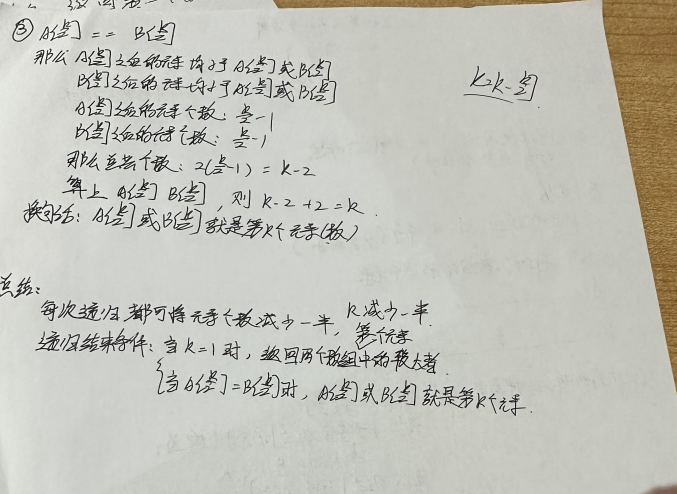 ③ A[k/2] == B[k/2]
那么 A[k/2]之前的元素均小于A[k/2]或B[k/2]
B[k/2]之后的元素均小于A[k/2]或B[k/2]
A[k/2]之前的元素个数: k/2-1
B[k/2]之前的元素个数: k/2-1
那么至共个数: 2(k/2-1) = k-2
算上 A[k/2] B[k/2], 则 k-2+2=k.
换句话: A[k/2]或B[k/2]就是第k个元素(数)
k=k-k/2
总结:
每次递归都可将元素个数减少一半, k减少一半.
递归结束条件: 当k=1时, 返回两个数组中的较大者. 第一个元素
当A[k/2]=B[k/2]时, A[k/2]或B[k/2]就是第k个元素.